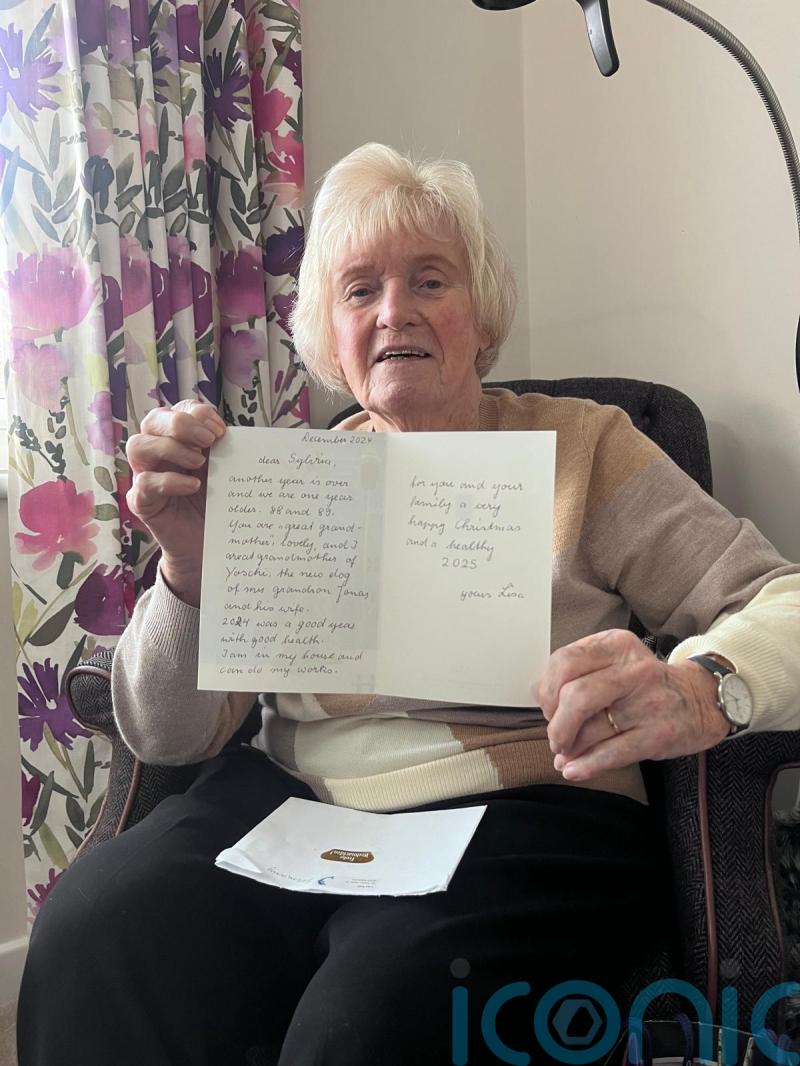 December 2024
dear Sylvia,
another year is over
and we are one year
older. 88 and 89.
You are „great grand-
mother", lovely, and I
greatgrandmother of
Yoschi, the new dog
of my grandson Jonas
and his wife.
2024 was a good year
with good health.
I am in my house and
can do my works.
for you and your
family a very
happy Christmas
and a healthy
2025
yours Lisa
Frohe
Weihnachten!
Germany
iconic